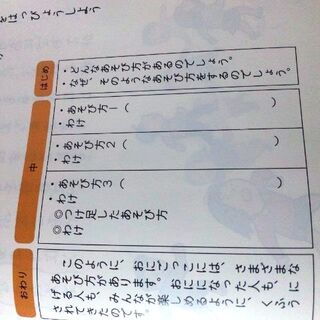 をはっぴょうしよう
はじめ
・どんなあそび方があるのでしょう。
・なぜ、そのようなあそび方をするのでしょう。
中
・あそび方1（　　）
・わけ
・あそび方2（　　）
・わけ
・あそび方3（　　）
・わけ
◎つけ足したあそび方
◎わけ
おわり
このように、おにごっこには、さまざまな
あそび方があります。おにになった人も、に
げる人も、みんなが楽しめるように、くふう
されてきたのです。